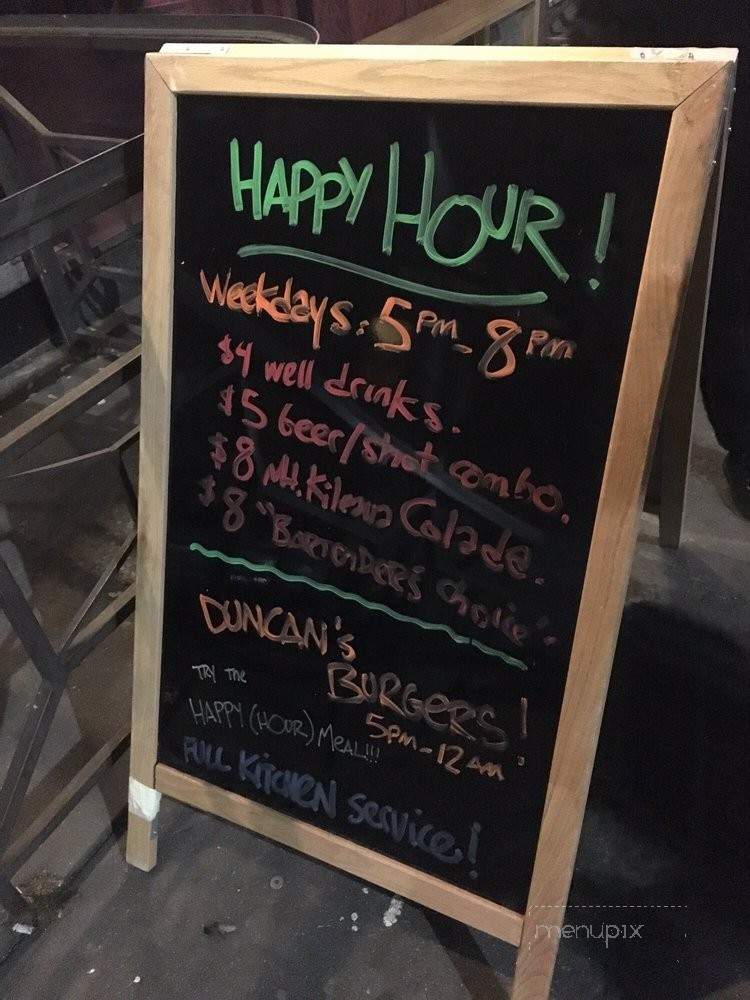 HAPPY HOUR!
Weekdays: 5PM - 8PM
$4 well drinks.
$5 beer/shot combo.
$8 Mt. Colada.
$8 "BARTENDER'S choice".
DUNCAN'S
BURGERS!
TRY THE
5PM-12AM
HAPPY (HOUR) MEAL!!!
FULL KITCHEN SERVICE!
menupix